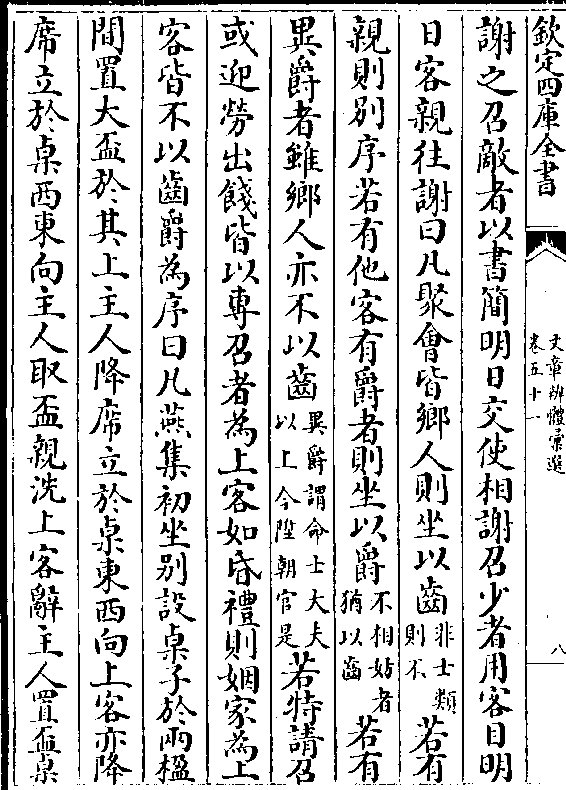 欽定四庫全書
文章辨體彙選
卷五十一
八
謝之召敵者以書簡明日交使相謝召少者用客目明
日客親往謝曰凡聚會皆鄉人則坐以齒非士類則不若有
親則別序若有他客有爵者則坐以爵不相妨者猶以齒若有
異爵者雖鄉人亦不以齒異爵謂命士大夫以上今陞朝官是若特請召
或迎勞出餞皆以專召者為上客如昏禮則姻家為上
客皆不以齒爵為序曰凡燕集初坐别設桌子於兩楹
間置大盃於其上主人降席立於桌東西向上客亦降
席立於桌西東向主人取盃親洗上客辭主人置盃桌